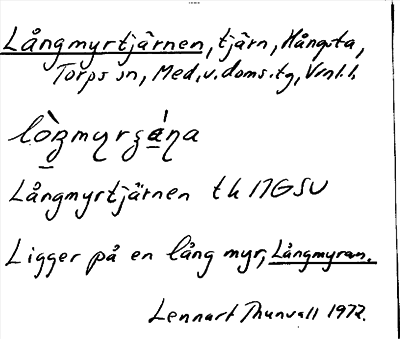 Långmyrtjärnen, tjärn, Hångsta,
Torps sn, Med. v. doms. tg, Vrnl. l.
Långmyrtjärnen tk 17G SV
Ligger på en lång myr, Långmyran.
Lennart Thunvall 1972.